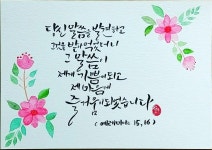 당신 말씀을 발견하고
그것을 받아 먹었더니
그 말씀이
제게 기쁨이 되고
제 마음에
즐거움이 되었습니다
(예레미야 15,16)